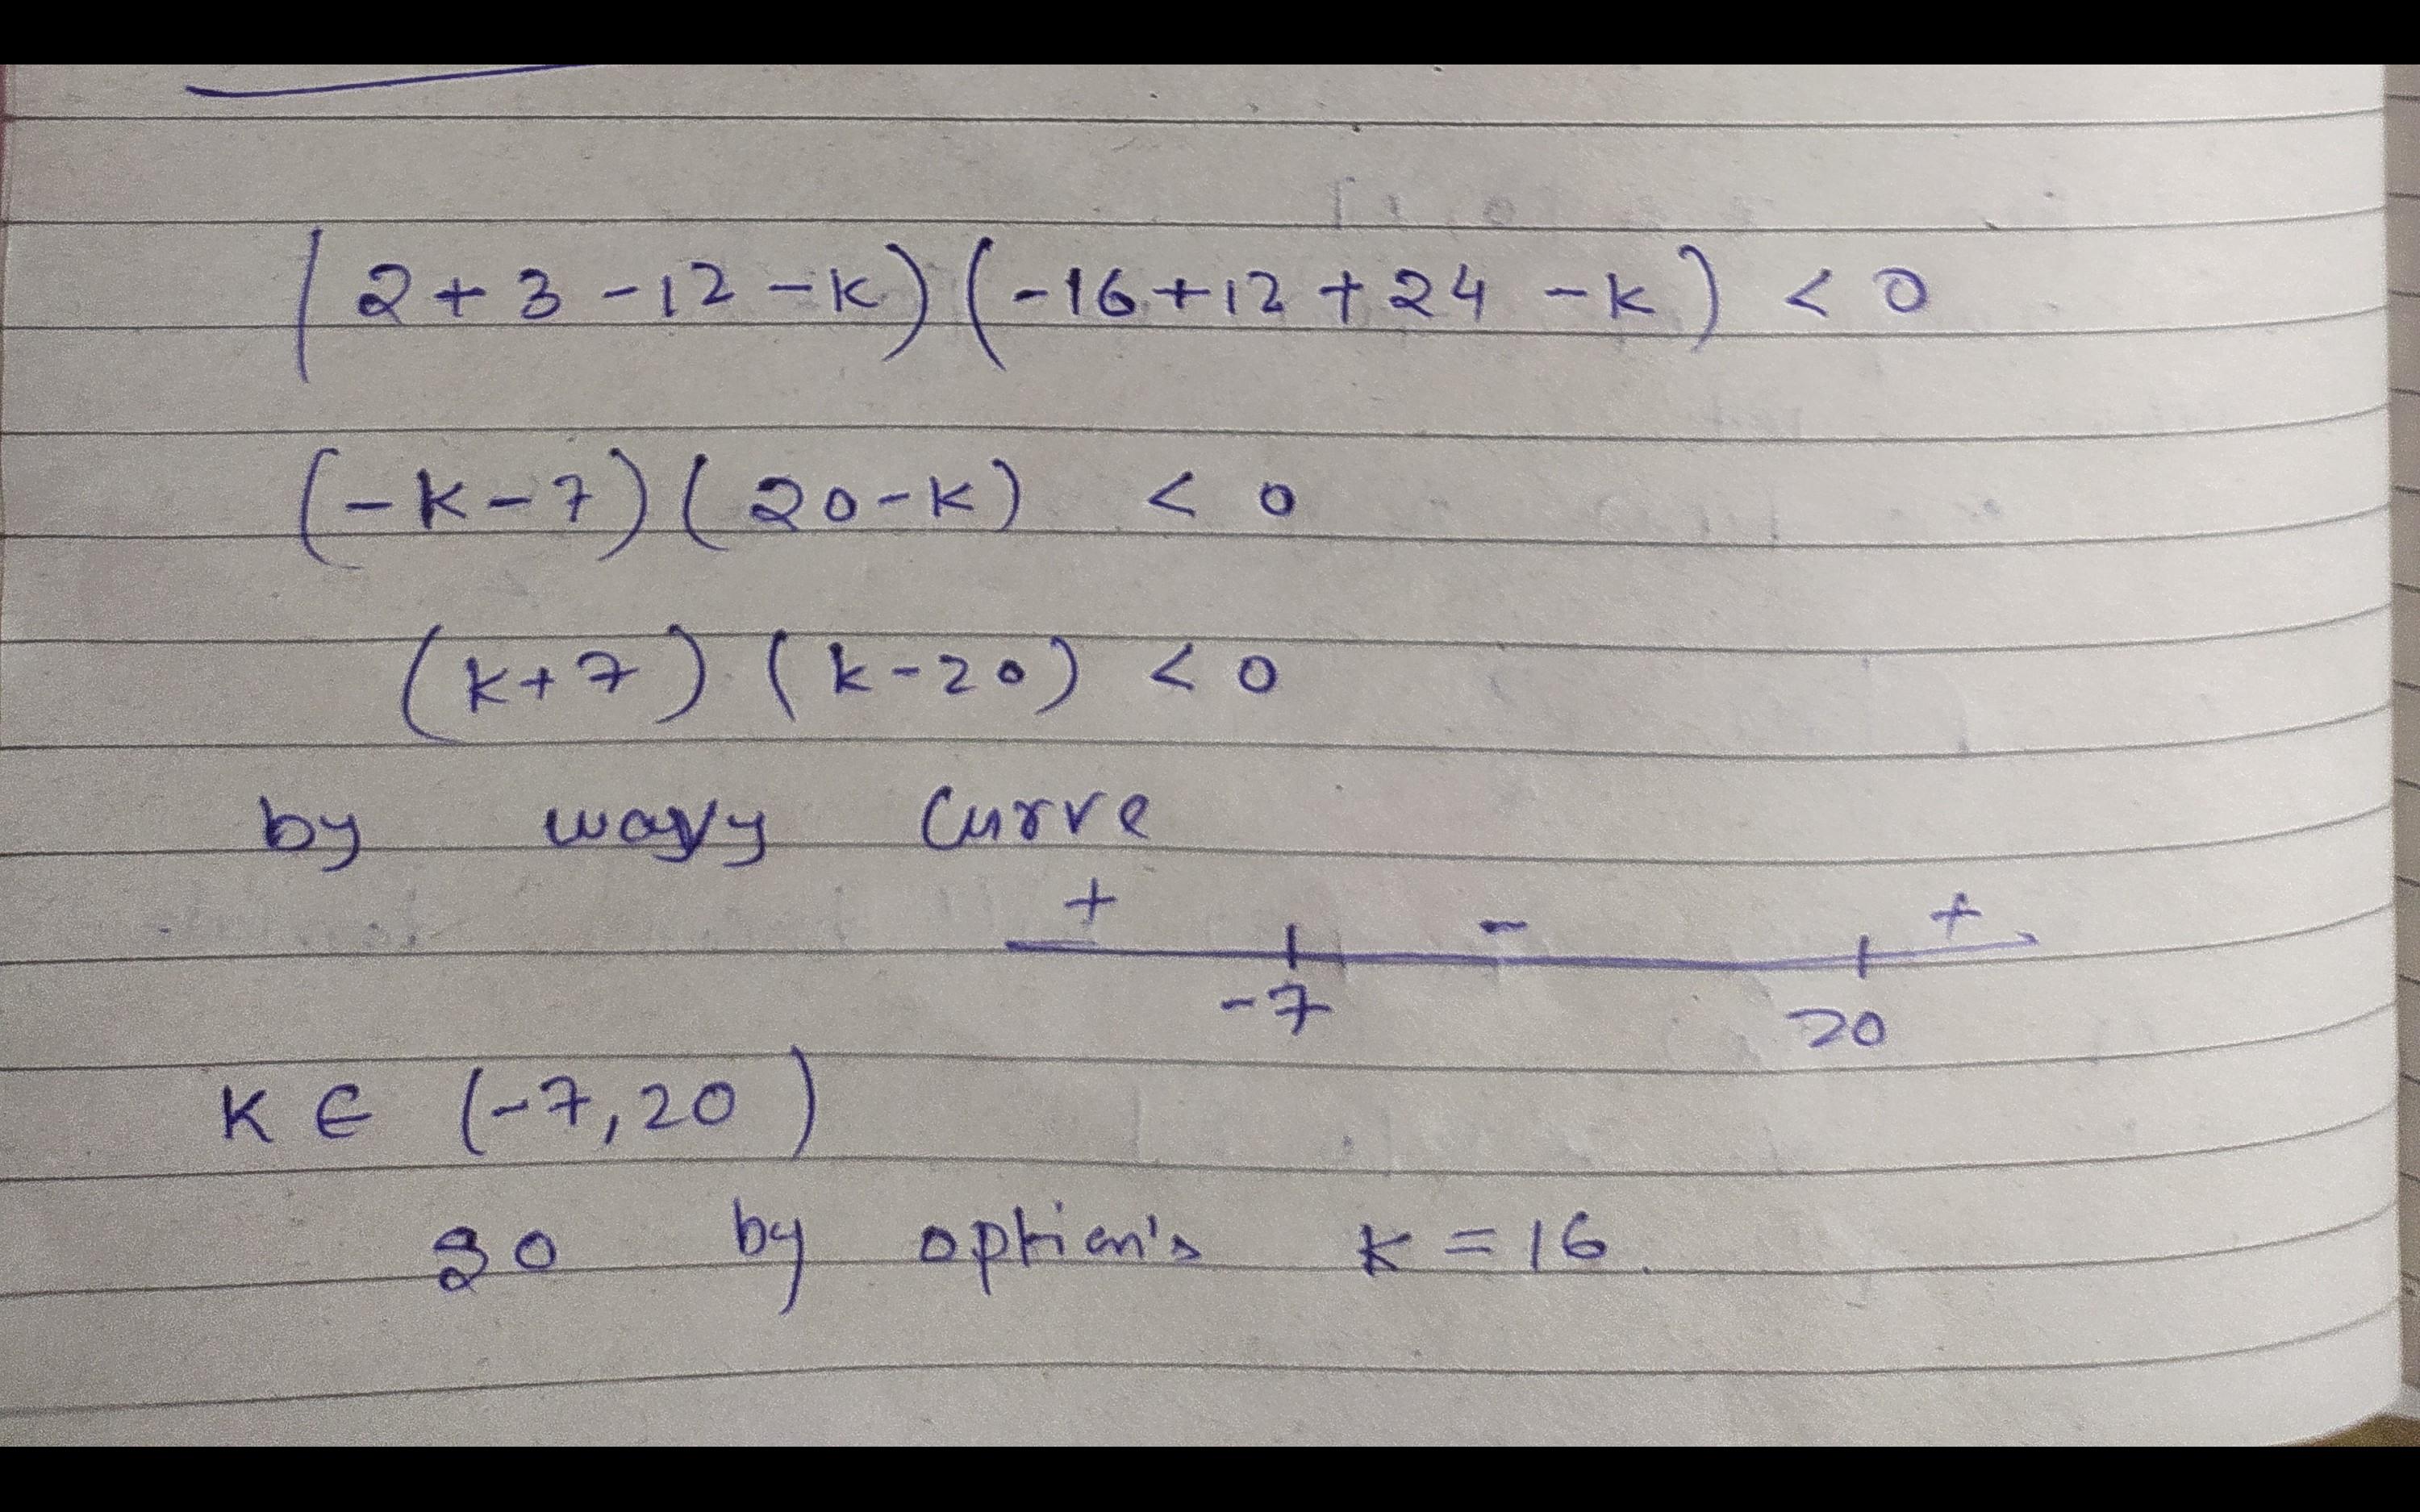 (2+3-12-k)(-16+12+24-k) < 0
(-k-7)(20-k) < 0
(k+7)(k-20) < 0
by wavy Curve
+ - +
-7 20
K ∈ (-7,20)
so by option's k=16.